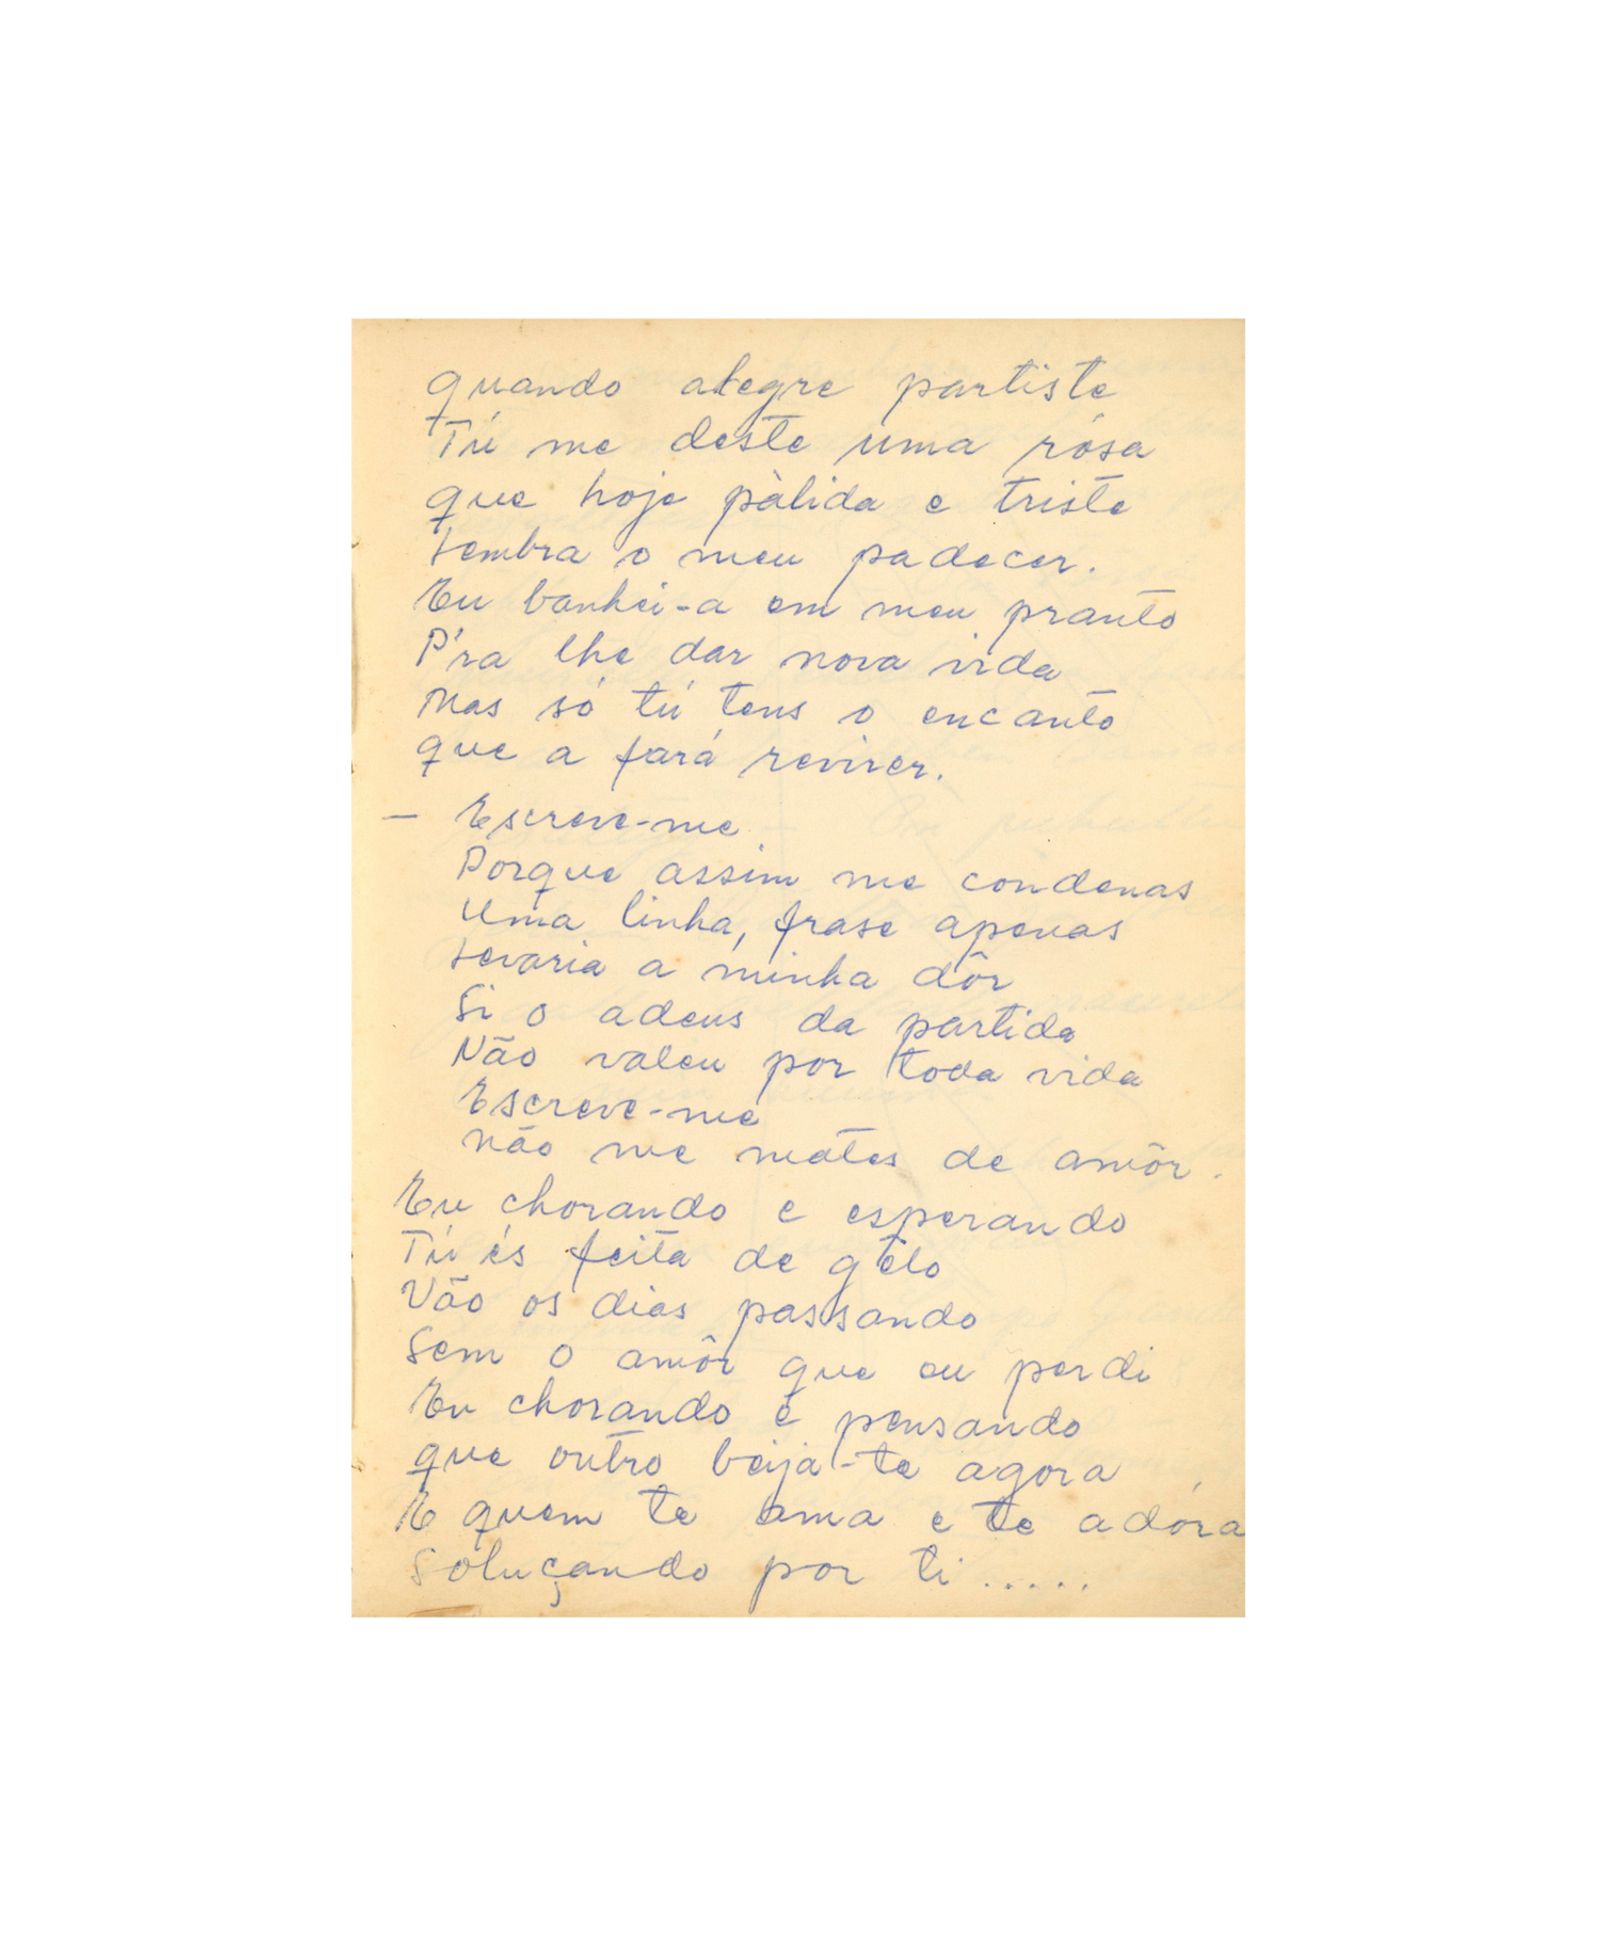 quando alegre partiste
Tú me deste uma rósa
que hoje pàlida e triste
Lembra o meu padecer.
Eu banhei-a em meu pranto
P'ra lhe dar nova vida
Mas só tú tens o encanto
que a fará reviver.
— Escreve-me
Porque assim me condenas
Uma linha, frase apenas
Levaria a minha dôr
Si o adeus da partida
Não valeu por toda vida
Escreve-me
não me mates de amôr.
Eu chorando e esperando
Tú és feita de gêlo
Vão os dias passando
Sem o amôr que eu perdi
Eu chorando e pensando
que outro beija-te agora
E quem te ama e te adóra
Soluçando por ti.....